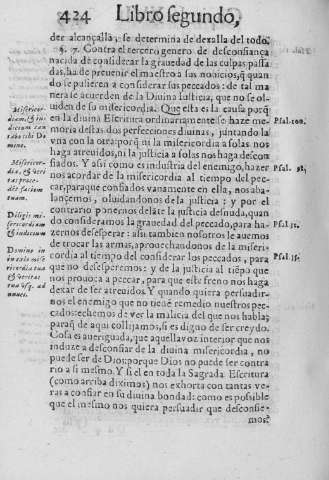 424 Libro segundo,
der alcançalla; se determina de dexalla del todo.
§. 7. Contra el tercero genero de desconfiança
nacida de considerar la grauedad de las culpas passa
das, ha de preuenir el maestro a sus nouicios, q̃ quan
do se pusieren a considerar sus peccados: de tal ma
nera se acuerden de la Diuina iusticia, que no se ol-
uiden de su misericordia. Que esta es la causa porq̃
en la diuina Escritura ordinarramente se haze me
moria destas dos perfecciones diuinas, juntando la
vna con la otra: porq̃ ni la misericordia a solas nos
haga atreuidos, ni la justicia a solas nos haga descon
fiados. Y assi como es industria del enemigo, hazer
nos acordar de la misericordia al tiempo del pec
car, para que confiados vanamente en ella, nos aba-
lancemos, oluidandonos de la justicia; y por el
contrario ponernos delãte la justicia desnuda, quan
do consideramos la grauedad del peccado, para ha-
zernos desesperar: assi tambien nosotros le auemos
de trocar las armas, aprouechandonos de la miseri-
cordia al tiempo del considerar los peccados, para
que no desesperemos: y de la justicia al tiẽpo que
nos prouoca a peccar, para que este freno nos haga
dexar de ser atreuidos. Y quando quiera persuadir-
nos el enemigo que no tiene remedio nuestros pec-
cados: echemos de ver la malicia del que nos habla;
para q̃ de aqui collijamos, si es digno de ser creydo.
Cosa es aueriguada, que aquella voz interior que nos
induze a desconfiar de la diuina misericordia, no
puede ser de Dios: porque Dios no puede ser contra
rio a si mesmo. Y si el en toda la Sagrada Escritura
(como arriba diximos) nos exhorta con tantas ve-
ras a confiar en su diuina bondad: como es possible
que el mesmo nos quiera persuadir que desconfie-
mos?
Misericor-
diam, & iu
dicium can
tabo tibi Do
mine.
Misericor-
dia, & veri
tas præce-
dẽt faciem
tuam.
Diligit mi-
sericordiam
& iudicium
Domine in
cœlo mise
ricordia tua
& veritas
tua vsq̃ ad
nubes.
Psal. 100.
Psal. 88.
Psal. 32.
Psal. 35.